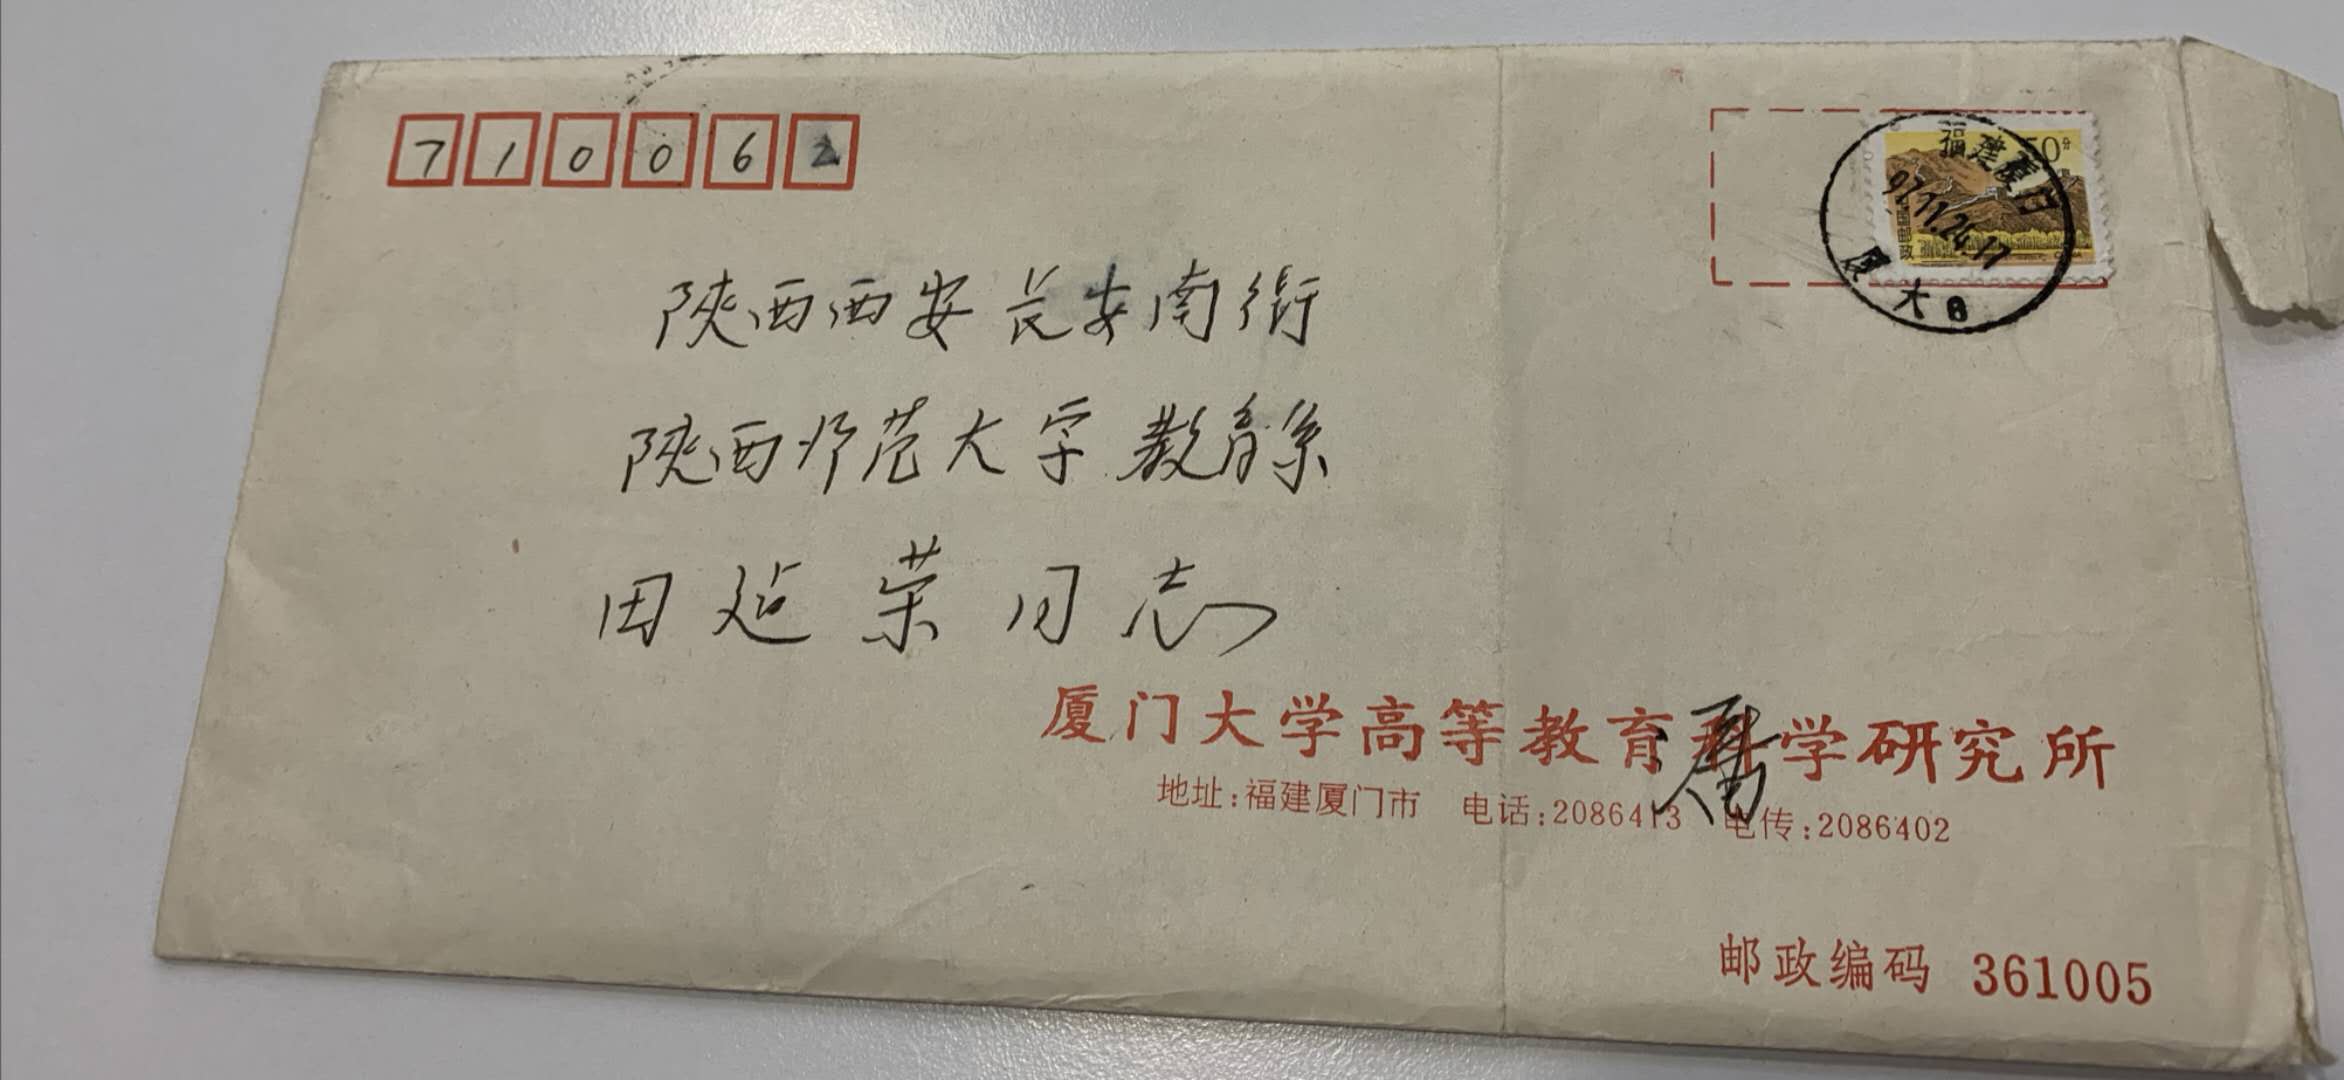 710062
50分
中国邮政
福建厦门
97.11.24.17
厦大
陕西西安长安南街
陕西师范大学教育系
田延荣同志
厦门大学高等教育科学研究所
地址:福建厦门市 电话:2086413 电传:2086402
邮政编码 361005